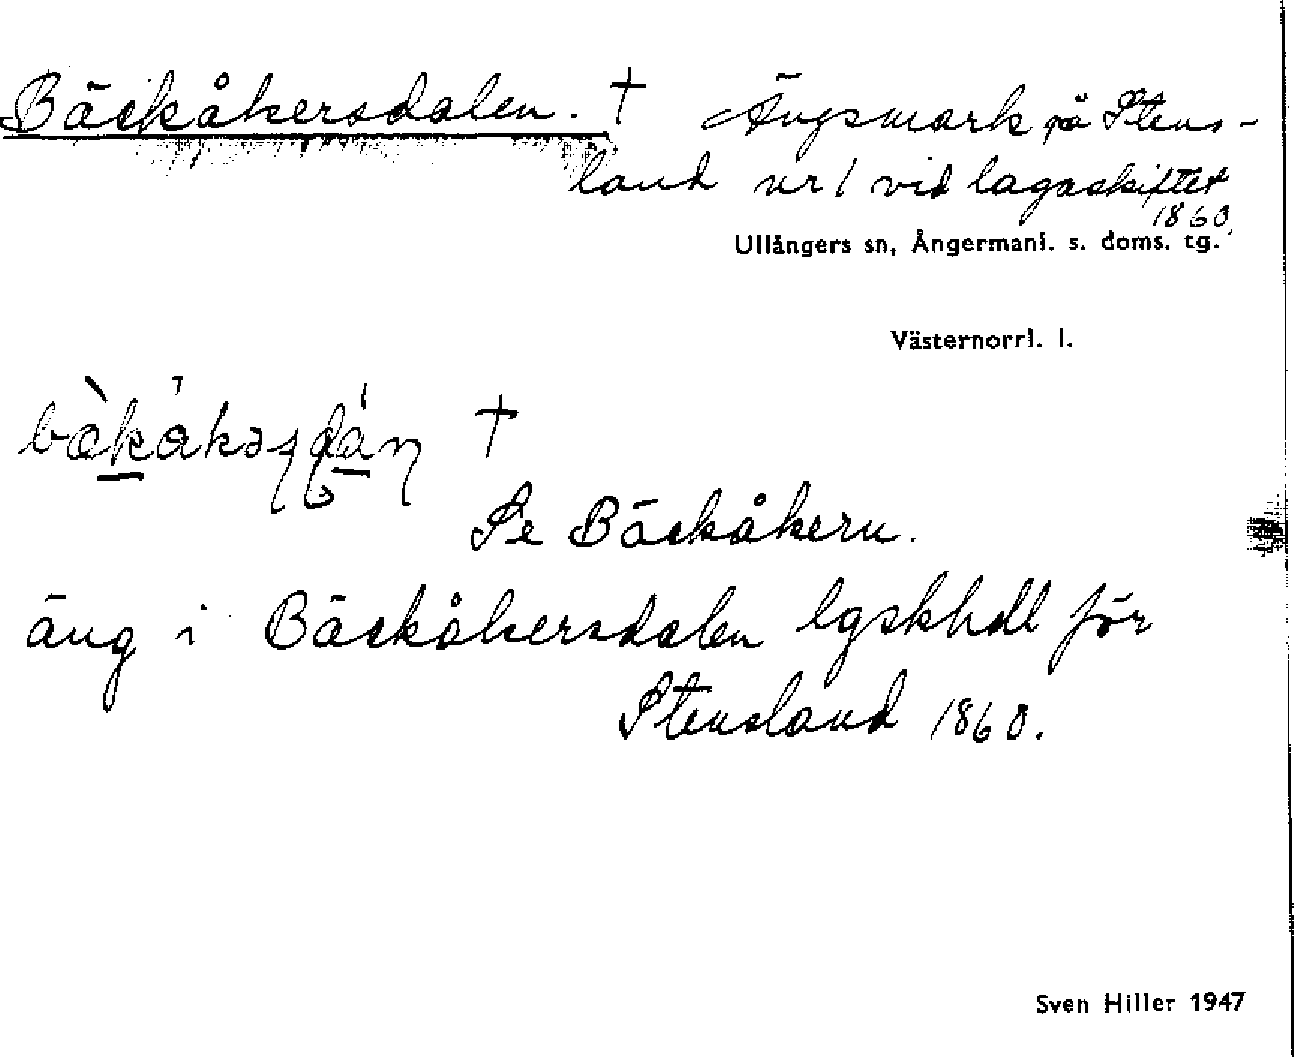 Bäckåkersdalen. † Ängsmark på Stens-
land nr 1 vid lagaskiftet
1860
Ullångers sn, Ångermanl. s. doms. tg.
Västernorrl. l.
†
Se Bäckåkern.
äng i Bäckåkersdalen lgskhdl för
Stensland 1860.
Sven Hiller 1947